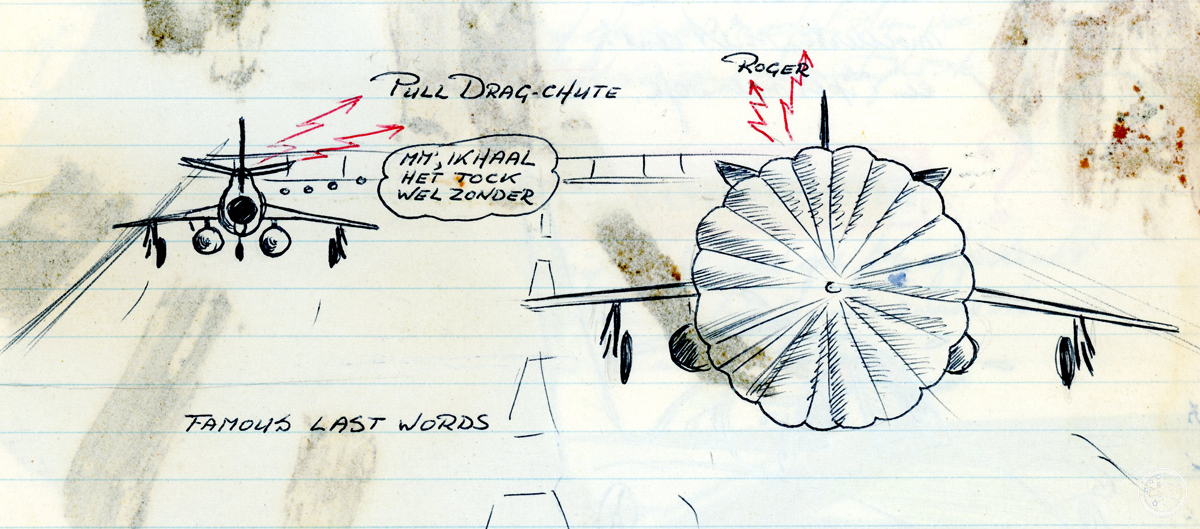 PULL DRAG-CHUTE
ROGER
MM', IKHAAL
HET TOCK
WEL ZONDER
FAMOUS LAST WORDS